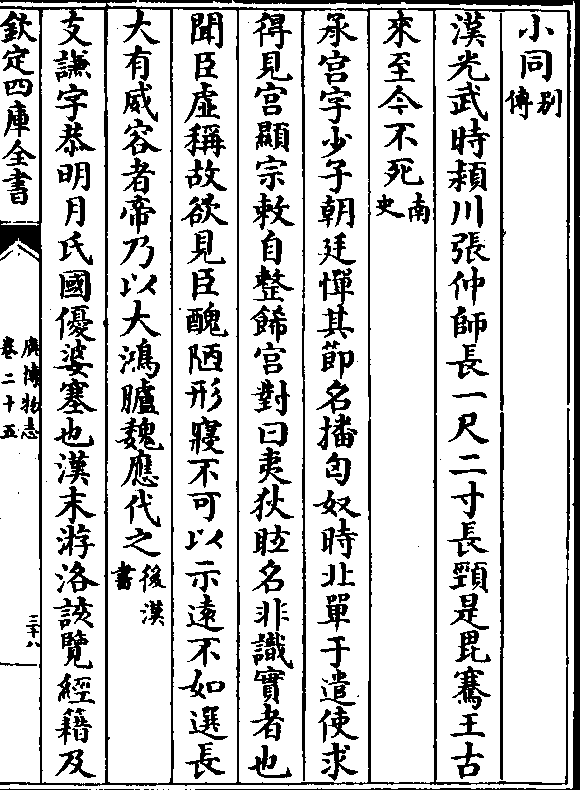 小同别傳
漢光武時頴川張仲師長一尺二寸長頸是毘騫王古
來至今不死南史
承宮字少子朝廷憚其節名播匈奴時北單于遣使求
得見宮顯宗敕自整餙宮對曰夷狄眩名非識實者也
聞臣虛稱故欲見臣醜陋形寢不可以示遠不如選長
大有威容者帝乃以大鴻臚魏應代之後漢書
支謙字恭明月氏國優婆塞也漢末游洛該覽經籍及
欽定四庫全書
廣博物志
卷二十五
三十八